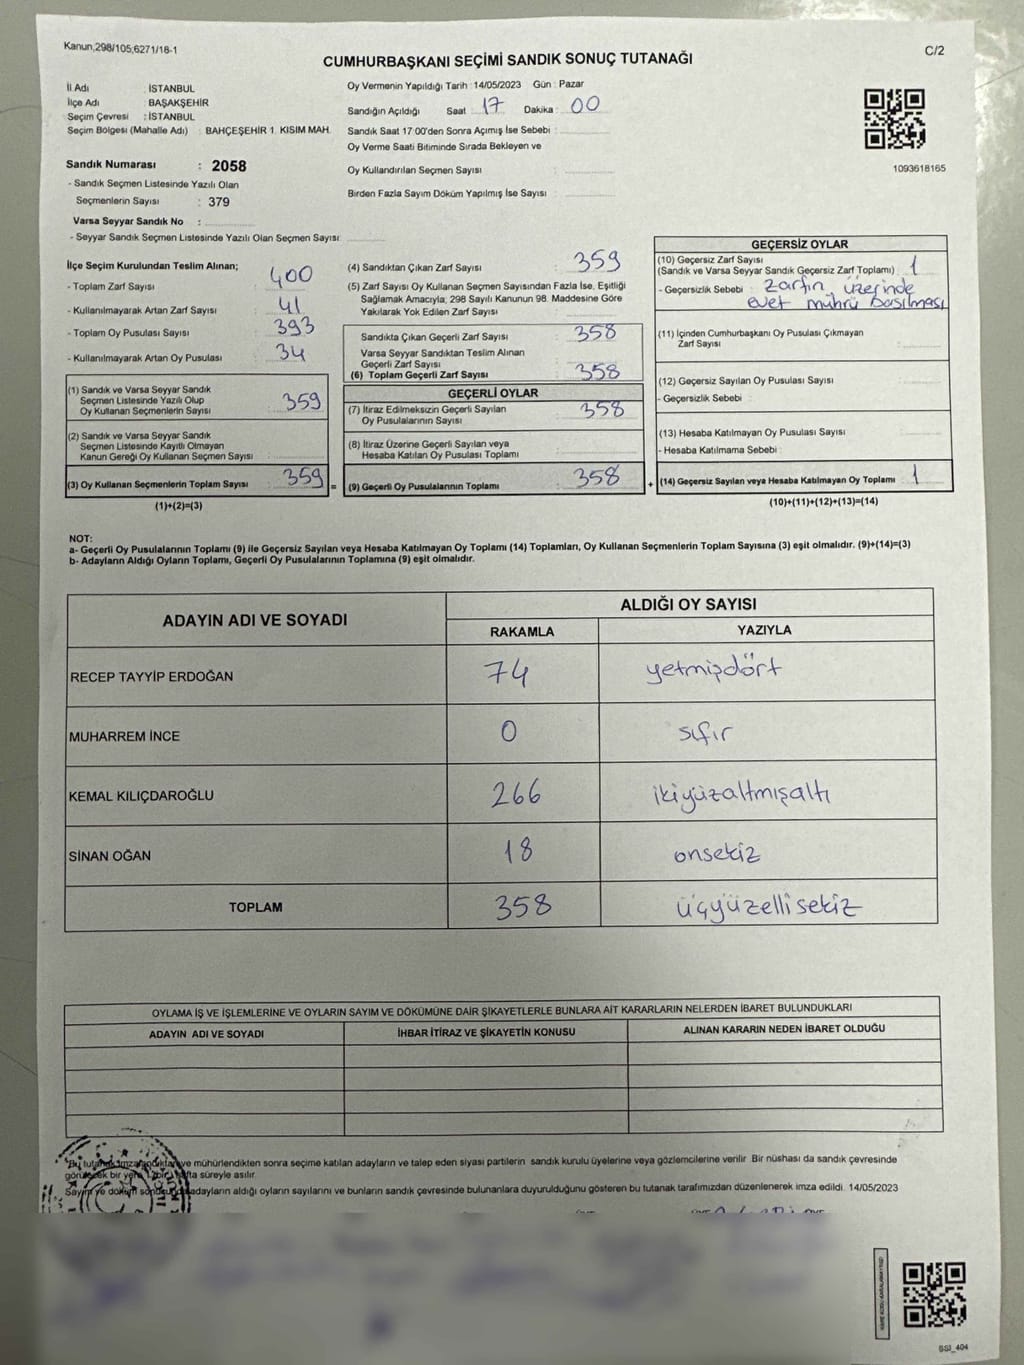 Kanun,298/105,6271/18-1
C/2
CUMHURBAŞKANI SEÇİMİ SANDIK SONUÇ TUTANAĞI
İl Adı : İSTANBUL
İlçe Adı : BAŞAKŞEHİR
Seçim Çevresi : İSTANBUL
Seçim Bölgesi (Mahalle Adı) : BAHÇEŞEHİR 1. KISIM MAH.
Sandık Numarası : 2058
- Sandık Seçmen Listesinde Yazılı Olan
Seçmenlerin Sayısı : 379
Varsa Seyyar Sandık No :
- Seyyar Sandık Seçmen Listesinde Yazılı Olan Seçmen Sayısı:
Oy Vermenin Yapıldığı Tarih : 14/05/2023 Gün : Pazar
Sandığın Açıldığı Saat : 17 Dakika : 00
Sandık Saat 17:00'den Sonra Açımış İse Sebebi :
Oy Verme Saati Bitiminde Sırada Bekleyen ve
Oy Kullandırılan Seçmen Sayısı :
Birden Fazla Sayım Döküm Yapılmış İse Sayısı :
1093618165
İlçe Seçim Kurulundan Teslim Alınan;
- Toplam Zarf Sayısı : 400
- Kullanılmayarak Artan Zarf Sayısı : 41
- Toplam Oy Pusulası Sayısı : 393
- Kullanılmayarak Artan Oy Pusulası : 34
(1) Sandık ve Varsa Seyyar Sandık
Seçmen Listesinde Yazılı Olup
Oy Kullanan Seçmenlerin Sayısı : 359
(2) Sandık ve Varsa Seyyar Sandık
Seçmen Listesinde Kayıtlı Olmayan
Kanun Gereği Oy Kullanan Seçmen Sayısı :
(3) Oy Kullanan Seçmenlerin Toplam Sayısı : 359 =
(1)+(2)=(3)
(4) Sandıktan Çıkan Zarf Sayısı : 359
(5) Zarf Sayısı Oy Kullanan Seçmen Sayısından Fazla İse, Eşitliği
Sağlamak Amacıyla, 298 Sayılı Kanunun 98. Maddesine Göre
Yakılarak Yok Edilen Zarf Sayısı :
Sandıkta Çıkan Geçerli Zarf Sayısı : 358
Varsa Seyyar Sandıktan Teslim Alınan
Geçerli Zarf Sayısı :
(6) Toplam Geçerli Zarf Sayısı : 358
GEÇERLİ OYLAR
(7) İtiraz Edilmeksizin Geçerli Sayılan
Oy Pusulasının Sayısı : 358
(8) İtiraz Üzerine Geçerli Sayılan veya
Hesaba Katılan Oy Pusulası Toplamı :
(9) Geçerli Oy Pusulalarının Toplamı : 358 +
GEÇERSİZ OYLAR
(10) Geçersiz Zarf Sayısı
(Sandık ve Varsa Seyyar Sandık Geçersiz Zarf Toplamı) : 1
- Geçersizlik Sebebi : zarfın üzerinde
evet mührü basılması
(11) İçinden Cumhurbaşkanı Oy Pusulası Çıkmayan
Zarf Sayısı :
(12) Geçersiz Sayılan Oy Pusulası Sayısı :
- Geçersizlik Sebebi :
(13) Hesaba Katılmayan Oy Pusulası Sayısı :
- Hesaba Katılmama Sebebi :
(14) Geçersiz Sayılan veya Hesaba Katılmayan Oy Toplamı : 1
(10)+(11)+(12)+(13)=(14)
NOT:
a- Geçerli Oy Pusulalarının Toplamı (9) ile Geçersiz Sayılan veya Hesaba Katılmayan Oy Toplamı (14) Toplamları, Oy Kullanan Seçmenlerin Toplam Sayısına (3) eşit olmalıdır. (9)+(14)=(3)
b- Adayların Aldığı Oyların Toplamı, Geçerli Oy Pusulalarının Toplamına (9) eşit olmalıdır.
ADAYIN ADI VE SOYADI ALDIĞI OY SAYISI
RAKAMLA YAZIYLA
RECEP TAYYİP ERDOĞAN 74 yetmişdört
MUHARREM İNCE 0 sıfır
KEMAL KILIÇDAROĞLU 266 ikiyüzaltmışaltı
SİNAN OĞAN 18 onsekiz
TOPLAM 358 üçyüzellisekiz
OYLAMA İŞ VE İŞLEMLERİNE VE OYLARIN SAYIM VE DÖKÜMÜNE DAİR ŞİKAYETLERLE BUNLARA AİT KARARLARIN NELERDEN İBARET BULUNDUKLARI
ADAYIN ADI VE SOYADI İHBAR İTİRAZ VE ŞİKAYETİN KONUSU ALINAN KARARIN NEDEN İBARET OLDUĞU
Bu tutanak ve mühürlendikten sonra seçime katılan adayların ve talep eden siyasi partilerin sandık kurulu üyelerine veya gözlemcilerine verilir. Bir nüshası da sandık çevresinde
bir yere hafta süreyle asılır.
Sayım ve döküm adayların aldığı oyların sayılarını ve bunların sandık çevresinde bulunanlara duyurulduğunu gösteren bu tutanak tarafımızdan düzenlenerek imza edildi. 14/05/2023
BSI_404